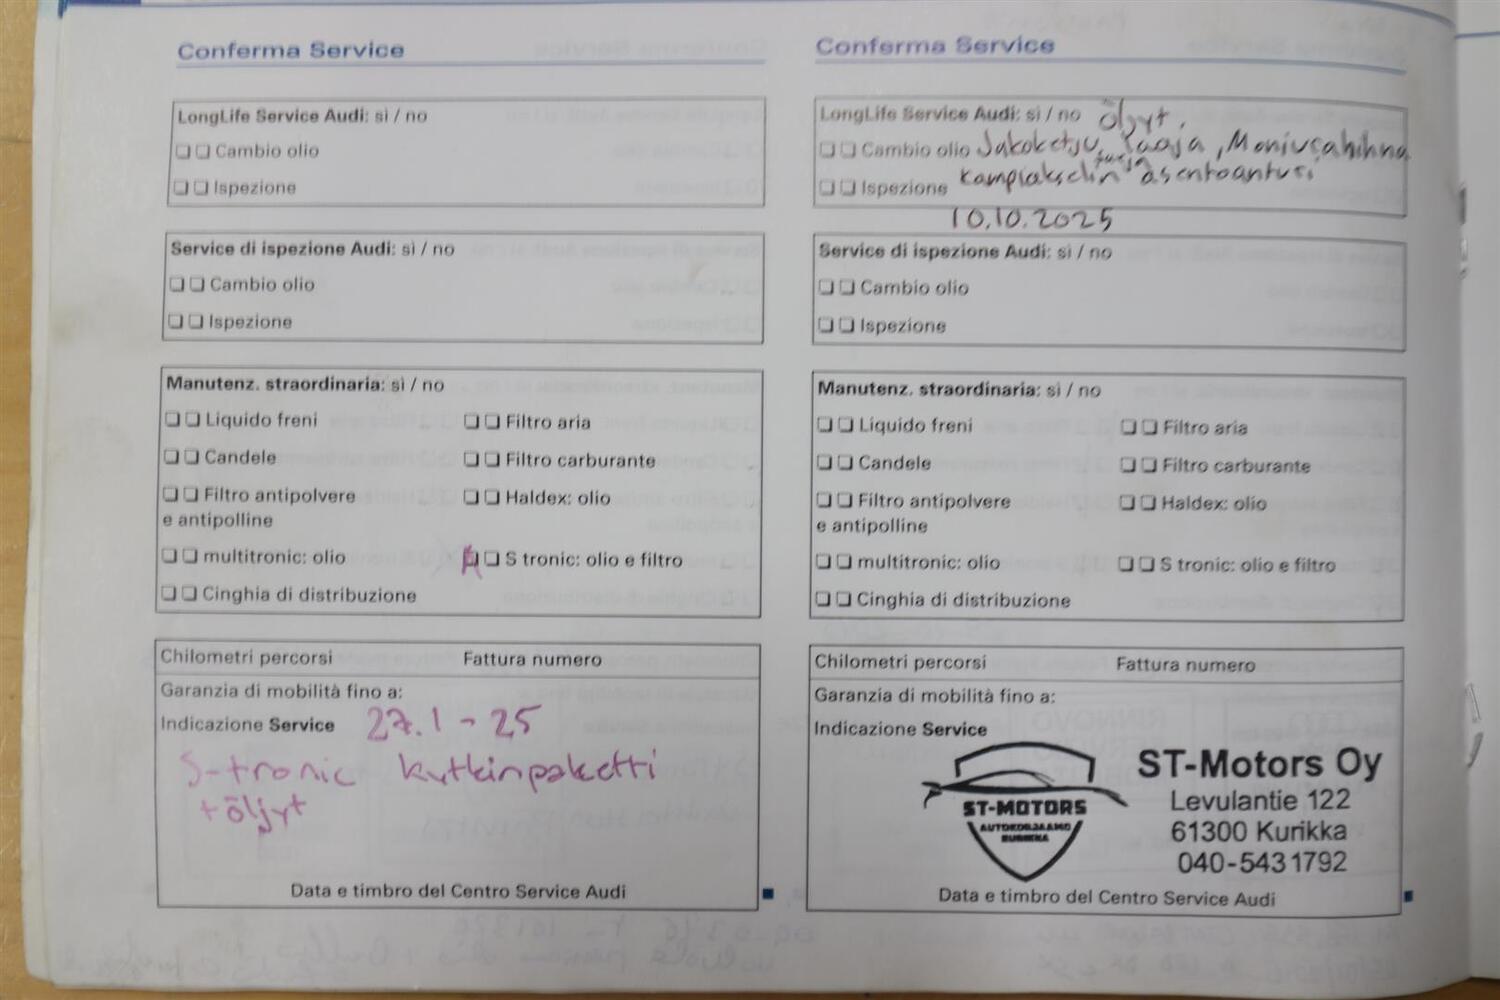 Conferma Service
LongLife Service Audi: sì / no
❏ ❏ Cambio olio
❏ ❏ Ispezione
Service di ispezione Audi: sì / no
❏ ❏ Cambio olio
❏ ❏ Ispezione
Manutenz. straordinaria: sì / no
❏ ❏ Liquido freni ❏ ❏ Filtro aria
❏ ❏ Candele ❏ ❏ Filtro carburante
❏ ❏ Filtro antipolvere ❏ ❏ Haldex: olio
e antipolline
❏ ❏ multitronic: olio ❏ ❏ S tronic: olio e filtro
❏ ❏ Cinghia di distribuzione
Chilometri percorsi Fattura numero
Garanzia di mobilità fino a:
Indicazione Service 27.1-25
S-tronic kytkinpaketti
+ öljyt
Data e timbro del Centro Service Audi
Conferma Service
LongLife Service Audi: sì / no öljyt,
❏ ❏ Cambio olio Jakoketju, Moniurahihna
sarja
❏ ❏ Ispezione kampiakselin asentoanturi
10.10.2025
Service di ispezione Audi: sì / no
❏ ❏ Cambio olio
❏ ❏ Ispezione
Manutenz. straordinaria: sì / no
❏ ❏ Liquido freni ❏ ❏ Filtro aria
❏ ❏ Candele ❏ ❏ Filtro carburante
❏ ❏ Filtro antipolvere ❏ ❏ Haldex: olio
e antipolline
❏ ❏ multitronic: olio ❏ ❏ S tronic: olio e filtro
❏ ❏ Cinghia di distribuzione
Chilometri percorsi Fattura numero
Garanzia di mobilità fino a:
Indicazione Service
ST-MOTORS
AUTOKORJAAMO
KURIKKA
ST-Motors Oy
Levulantie 122
61300 Kurikka
040-5431792
Data e timbro del Centro Service Audi